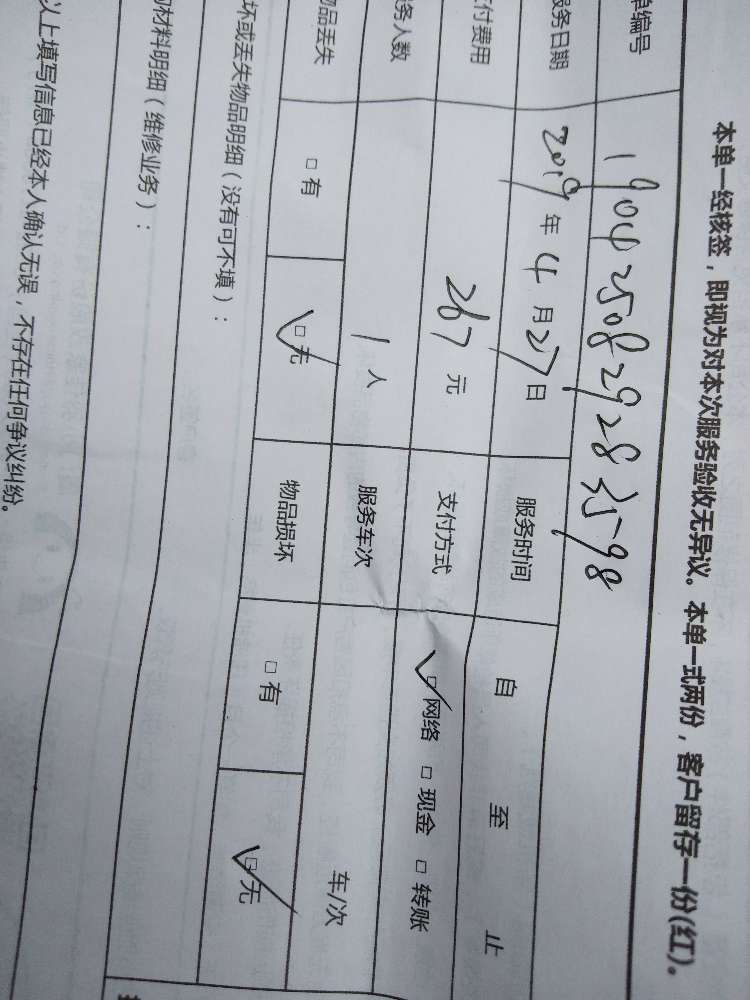 本单一经核签，即视为对本次服务验收无异议。本单一式两份，客户留存一份(红)。
单编号 1904250829283598
服务日期 2019年4月27日 服务时间 自 至 止
支付费用 267元 支付方式 □网络 □现金 □转账
务人数 1人 服务车次 车/次
物品丢失 □有 □无 物品损坏 □有 □无
坏或丢失物品明细（没有可不填）：
材料明细（维修业务）：
以上填写信息已经本人确认无误，不存在任何争议纠纷。